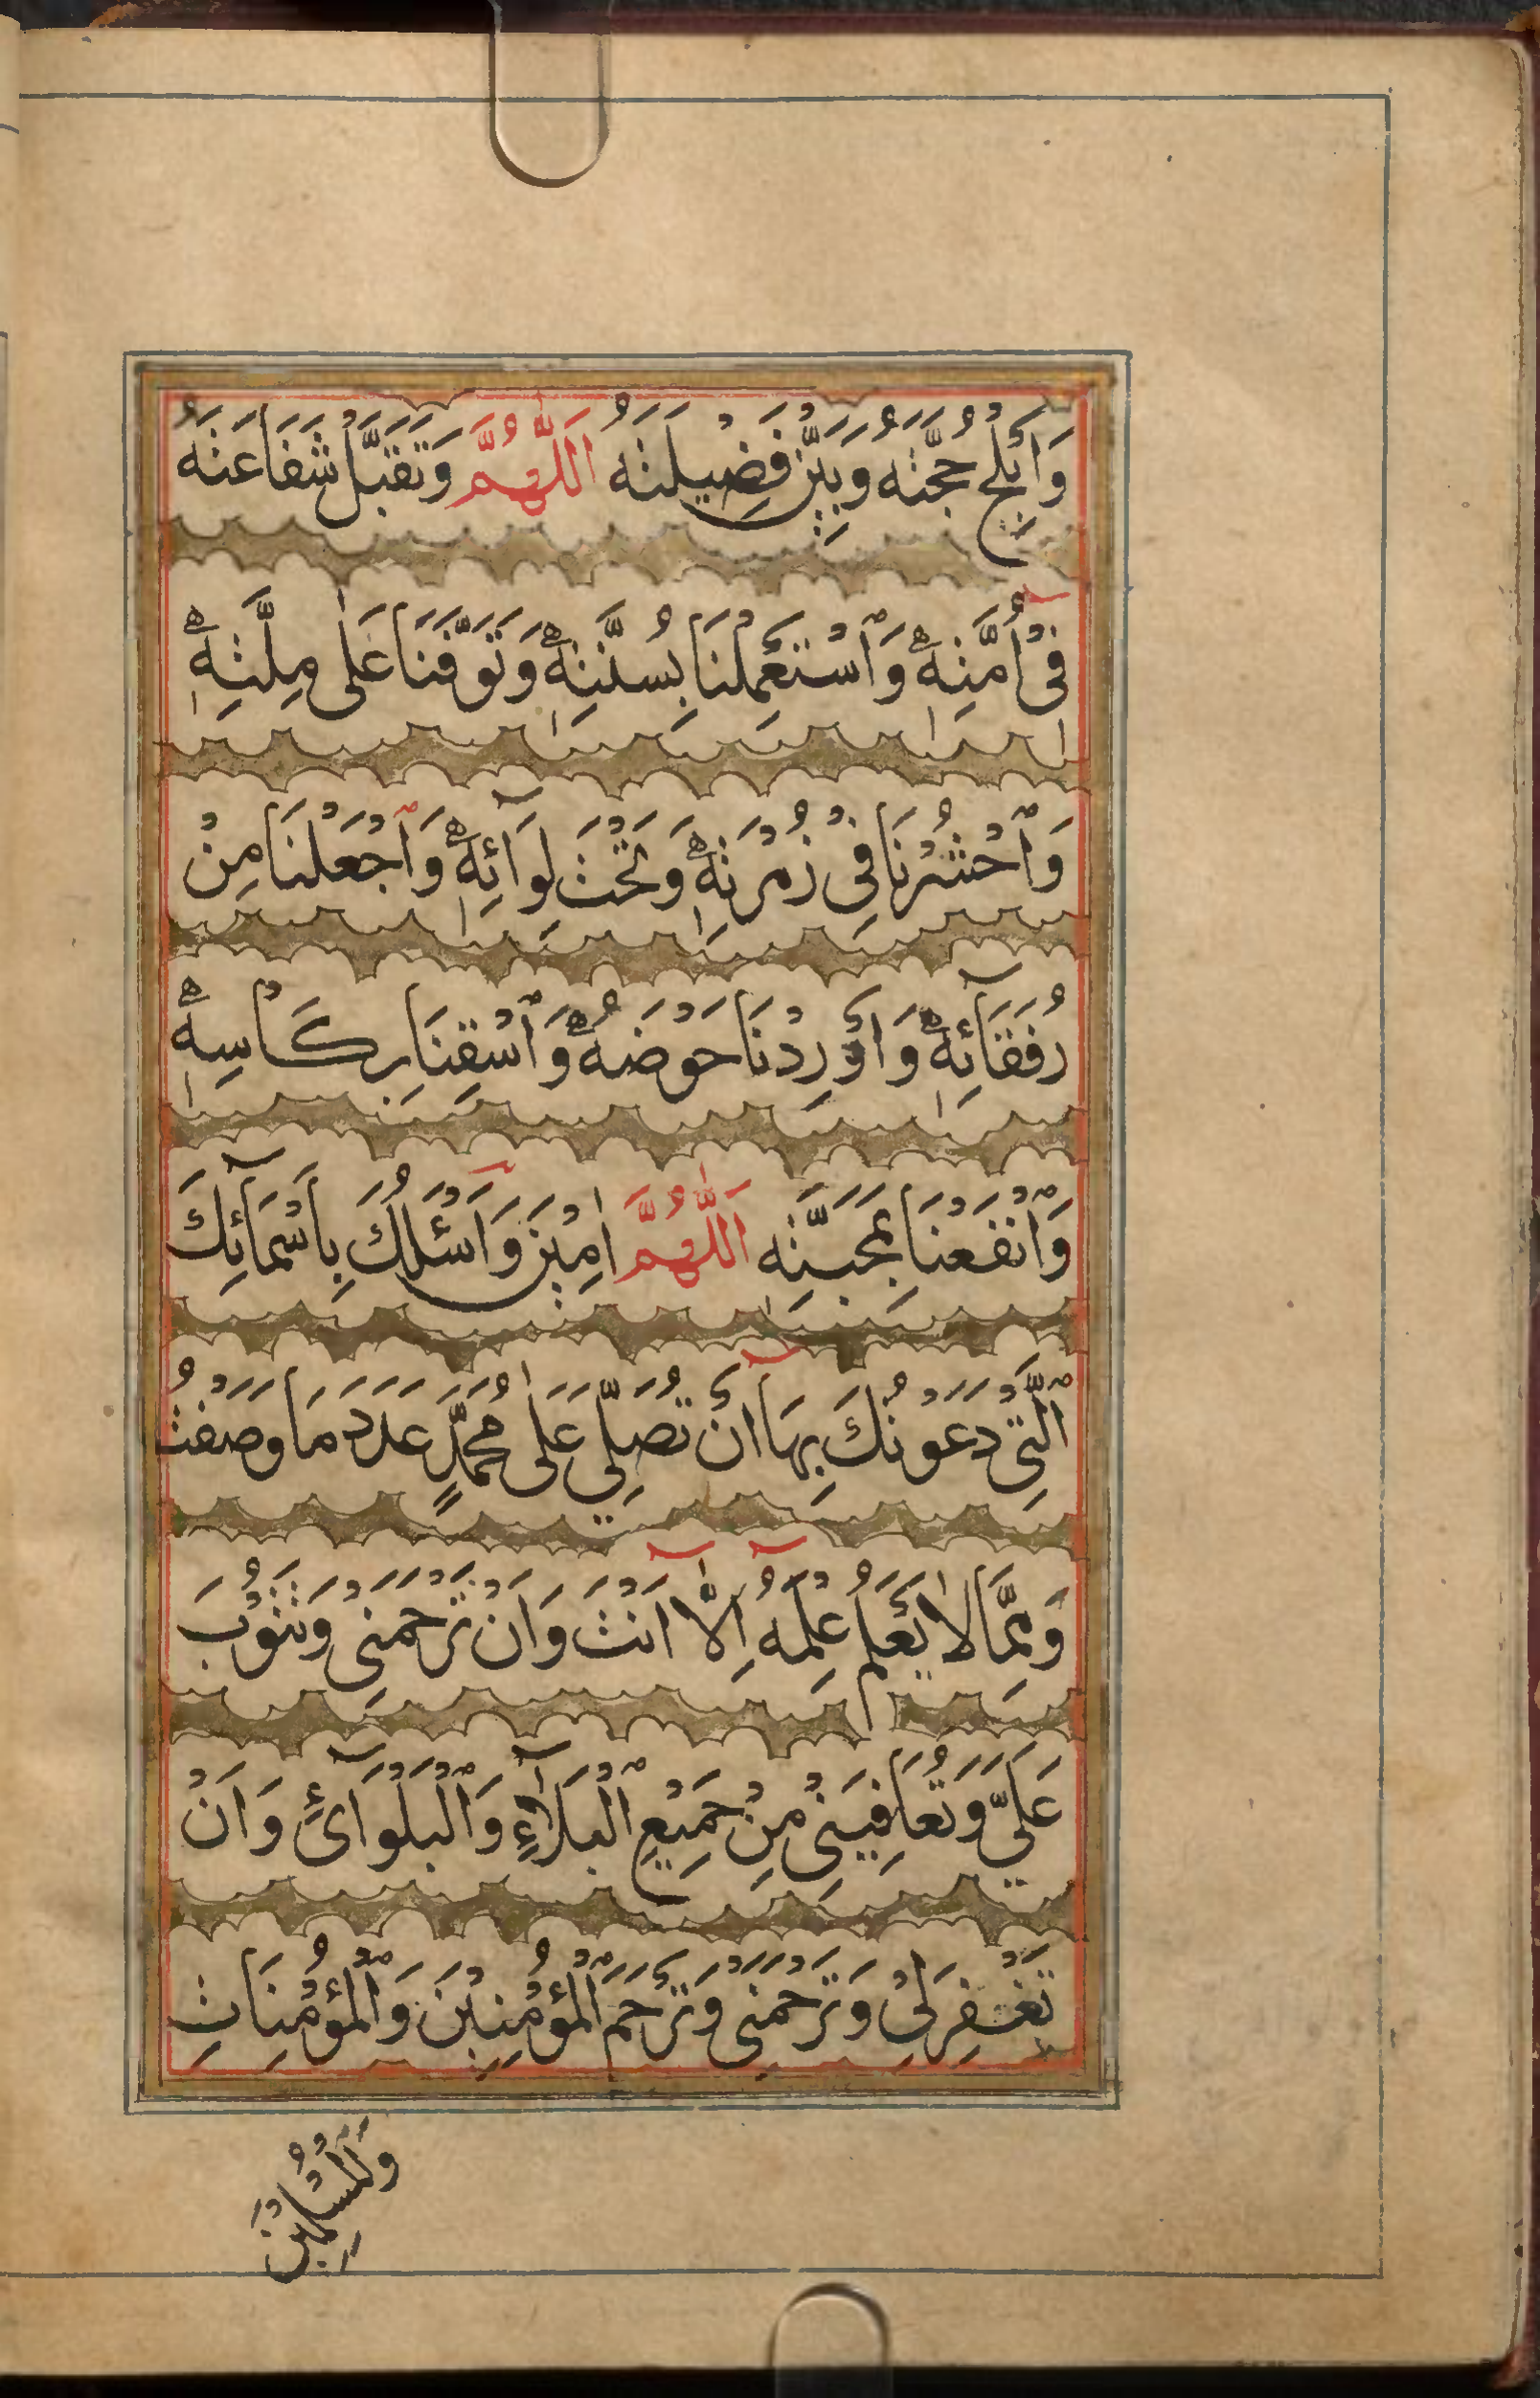 وَاَبْلِجْ حُجَّتَهُ وَبَيِّنْ فَضِيلَتَهُ اَللّٰهُمَّ وَتَقَبَّلْ شَفَاعَتَهُ
فِیْ اُمَّتِهٖ وَٱسْتَعْمِلْنَا بِسُنَّتِهٖ وَتَوَفَّنَا عَلٰى مِلَّتِهٖ
وَٱحْشُرْنَا فِیْ زُمْرَتِهٖ وَتَحْتَ لِوَآئِهٖ وَٱجْعَلْنَا مِنْ
رُفَقَآئِهٖ وَاَوْرِدْنَا حَوْضَهُ وَٱسْقِنَا بِكَاْسِهٖ
وَٱنْفَعْنَا بِمَحَبَّتِهٖ اَللّٰهُمَّ اٰمِيْنَ وَاَسْئَلُكَ بِاَسْمَآئِكَ
ٱلَّتِیْ دَعَوْتُكَ بِهَآ اَنْ تُصَلِّيَ عَلٰى مُحَمَّدٍ عَدَدَ مَا وَصَفْتُ
وَمِمَّا لَا يَعْلَمُ عِلْمَهُٓ اِلَّآ اَنْتَ وَاَنْ تَرْحَمَنِیْ وَتَتُوْبَ
عَلَيَّ وَتُعَافِيَنِیْ مِنْ جَمِيْعِ ٱلْبَلَآءِ وَٱلْبَلْوَآئِ وَاَنْ
تَغْفِرَ لِیْ وَتَرْحَمَنِیْ وَتَرْحَمَ ٱلْمُؤْمِنِيْنَ وَٱلْمُؤْمِنَاتِ
وَٱلْمُسْلِمِيْنَ